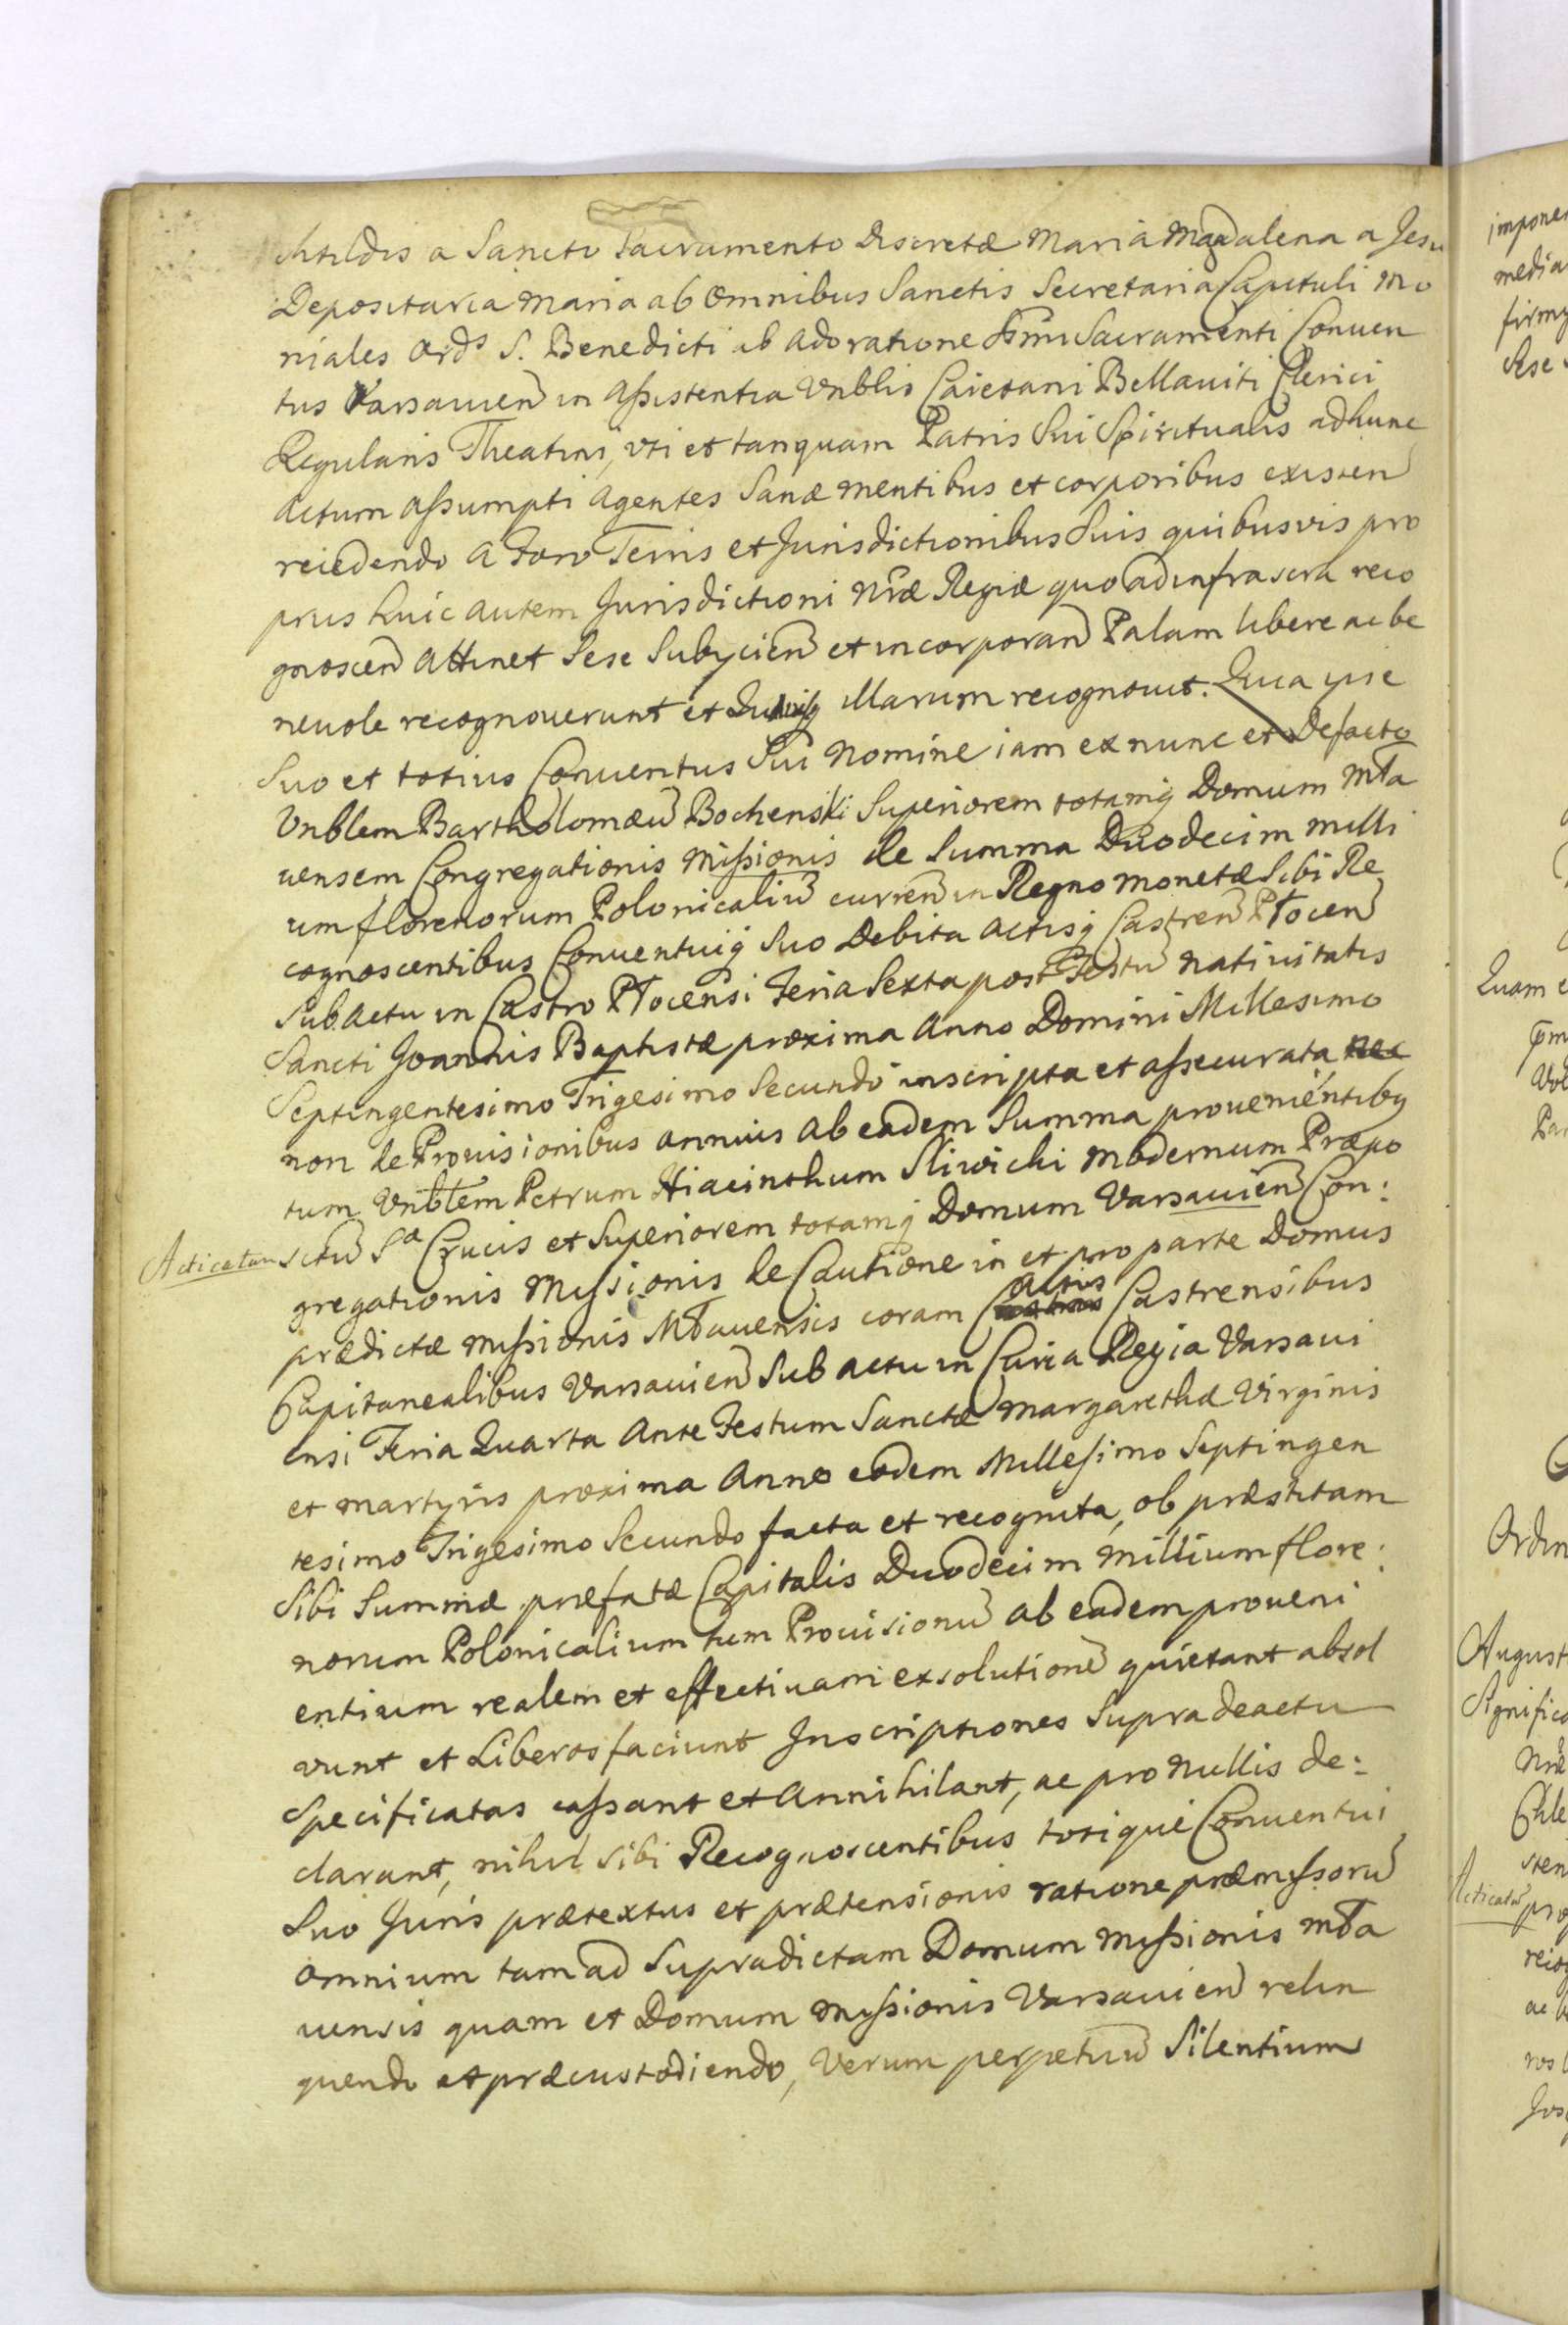 chtildis a Sancto Sacramento Discretæ Maria Magdalena a Jesu
Depositaria Maria ab Omnibus Sanctis Secretaria Capituli Mo
niales Ords S. Benedicti ab Adoratione Ssmi Sacramenti Conuen
tus Varsauien in Assistentia Vnblis Caietani Bellauiti Clerici
Regularis Theatini, vti et tanquam Patris Sui Spiritualis adhunc
Actum assumpti Agentes Sanæ mentibus et corporibus existen
recedendo a Foro Terris et Jurisdictionibus Suis quibusvis pro
prus huic autem Jurisdictioni Nræ Regiæ quo ad infrascra reco
gnoscen attinet Sese Subyicien et incorporan Palam libere ac be
neuole recognouerunt et illarum recognouit. Quia ipse
Suo et totius Conuentus Sui Nomine iam ex nunc et Defacto
Vnblem Bartholomæu Bochenski Superiorem totamq Domum Mła
uensem Congregationis Missionis de Summa Duodecim milli
um florenorum Polonicaliu curren in Regno monetæ Sibi Re
cognoscentibus Conuentuiq Suo Debita Actisq Castren Płocen
Sub Actu in Castro Płocensi Feria Sexta post Festu Natiuitatis
Sancti Joannis Baptistæ proxima Anno Domini Millesimo
Septingentesimo Trigesimo Secundo inscripta et assecurata, nec
non de Prouisionibus annuis ab eadem Summa prouenientibq
tum Vnblem Petrum Hiacinthum Sliwicki Modernum Præpo
Acticatum
situ Sa Crucis et Superiorem totamq Domum Varsauien Con:
gregationis Missionis de Cautione in et pro parte Domus
prædictæ Missionis Młauensis coram Actis Castrensibus
Capitanealibus Varsauien Sub actu in Curia Regia Varsaui
ensi Feria Quarta Ante Festum Sanctæ Margarethæ Virginis
et Martyris proxima Anno eodem Millesimo Septingen
tesimo Trigesimo Secundo facta et recognita, ob præstitam
Sibi Summæ præfatæ Capitalis Duodecim Millium flore:
norum Polonicalium tum Prouisionu ab eadem proueni
entium realem et effectiuam exsolutione quietant absol
vunt et Liberos faciunt Inscriptiones Supra deactu
Specificatas cassant et Annihilant, ac pro Nullis de:
clarant, nihil sibi Recognoscentibus totique Conuentui
Suo Juris prætextus et prætensionis ratione præmissoru
Omnium tam ad Supradictam Domum Missionis Mła
uensis quam et Domum Missionis Varsauien relin
quendo et præcustodiendo, Verum perpetuu Silentium